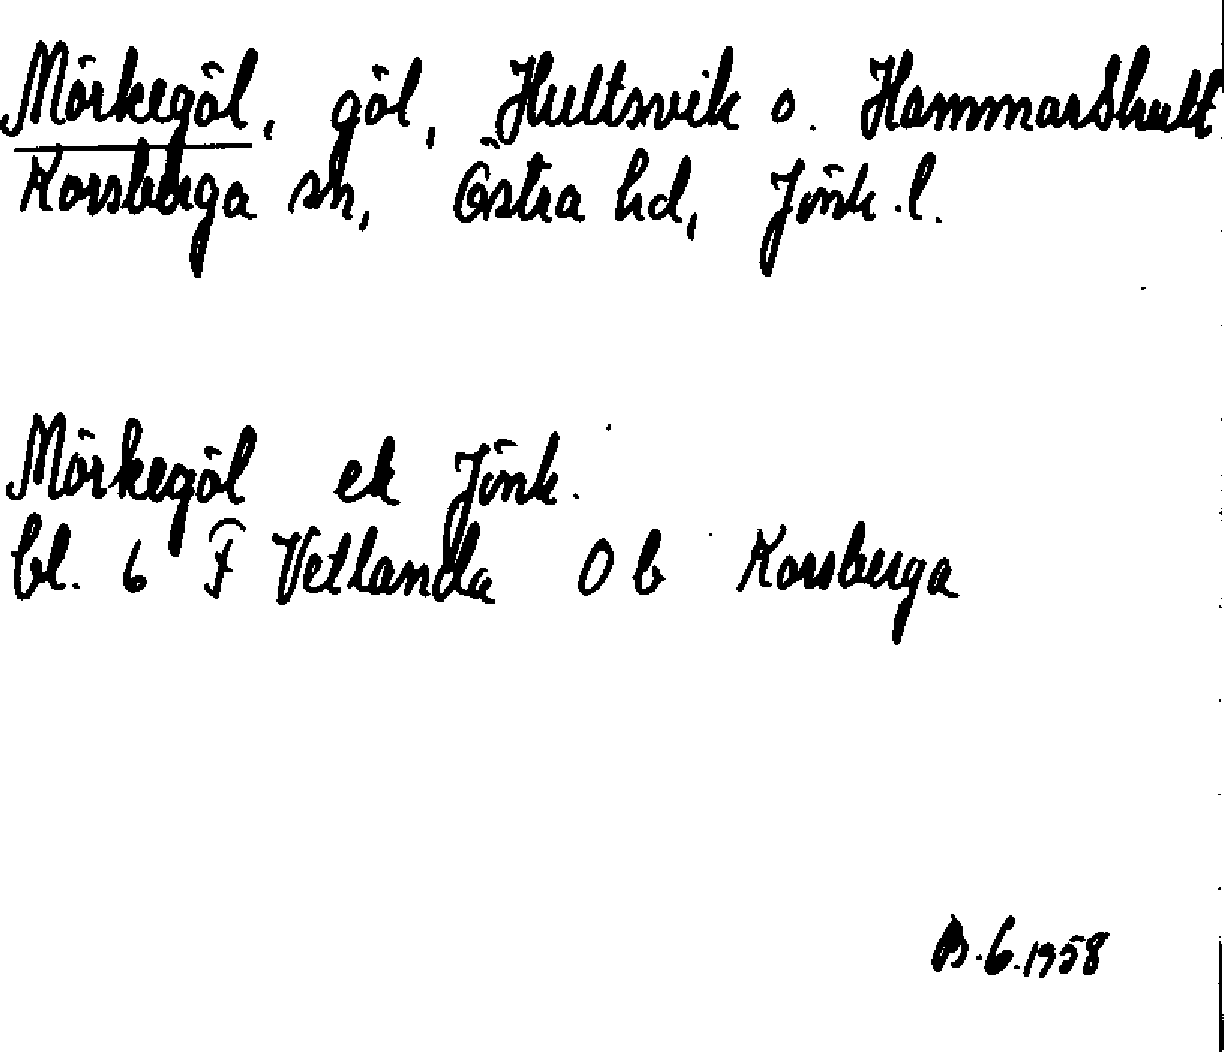 Mörkegöl, göl, Hultsvik o. Hammarshult
Korsberga sn, Östra hd, Jönk. l.
Mörkegöl ek Jönk.
bl. 6 F Vetlanda O b Korsberga
B.G.1958